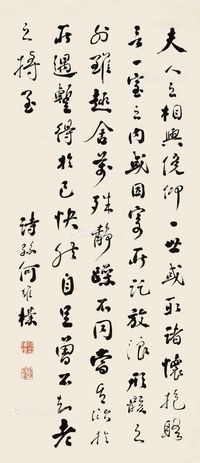 夫人之相與俛仰一世或取諸懷抱晤
言一室之內或因寄所託放浪形骸之
外雖趣舍萬殊靜躁不同當其欣於
所遇暫得於己快然自足曾不知老
之將至
詩孫何維樸